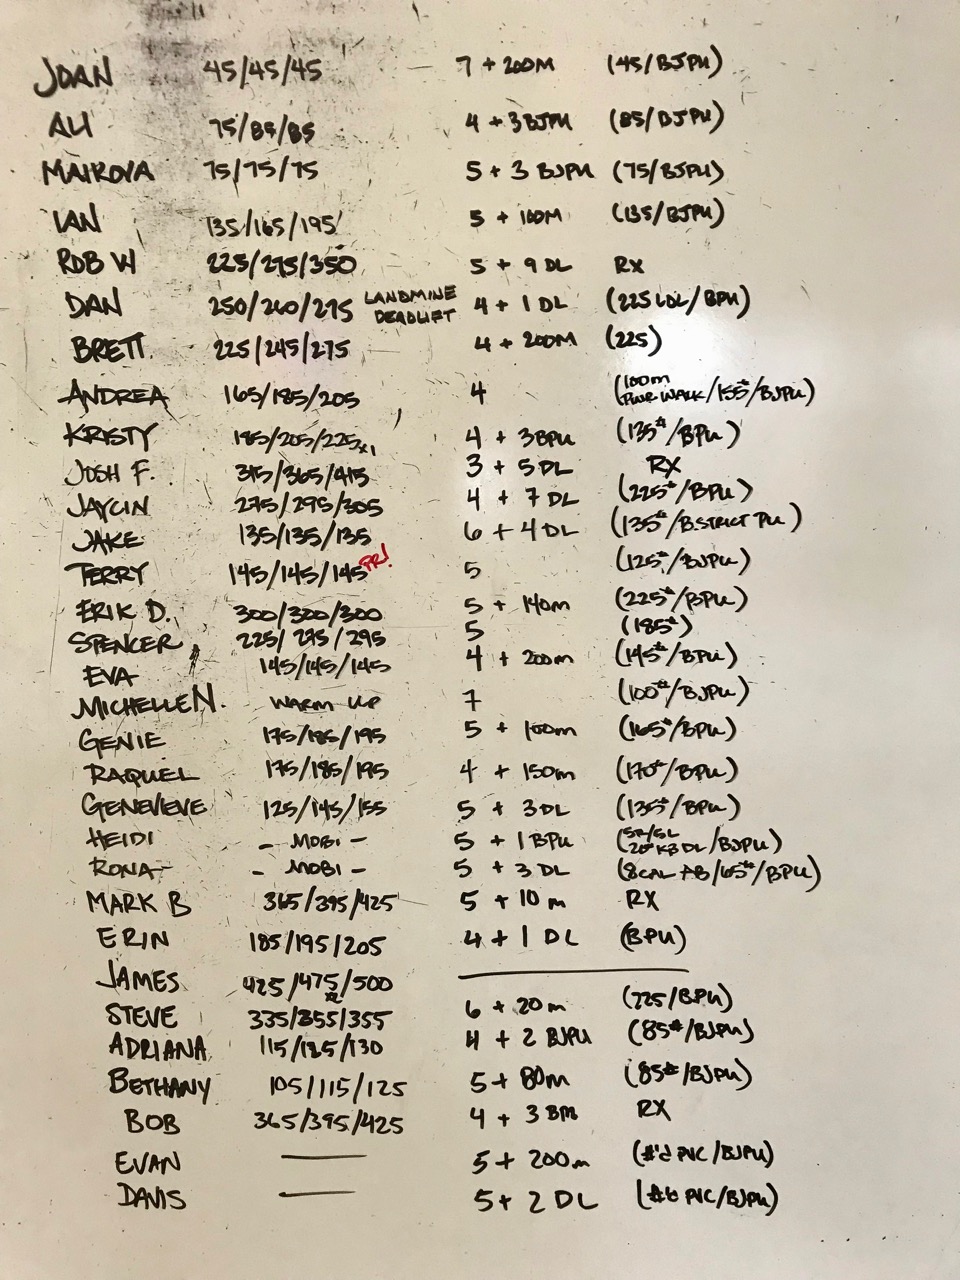 JOAN 45/45/45 7 + 200M (45/BJPU)
ALI 75/85/85 4 + 3BJPU (85/BJPU)
75/75/75 5 + 3 BJPU (75/BJPU)
IAN 135/165/195 5 + 100M (135/BJPU)
ROB W 225/275/350 5 + 9 DL RX
DAN 250/260/275 LANDMINE DEADLIFT 4 + 1 DL (225 LDL/BPU)
BRETT 225/245/275 4 + 200M (225)
ANDREA 165/185/205 4 (100m PWR WALK/155#/BJPU)
KRISTY 185/205/225x1 4 + 3BPU (135#/BPU)
JOSH F. 315/365/415 3 + 5 DL RX
JAYCIN 275/295/305 4 + 7 DL (225#/BPU)
JAKE 135/135/135 6 + 4 DL (135#/B.STRICT PU)
TERRY 145/145/145 PR! 5 (125#/BJPU)
ERIK D. 300/300/300 5 + 140m (225#/BPU)
SPENCER 225/275/295 5 (185#)
EVA 145/145/145 4 + 200m (145#/BPU)
MICHELLE N. WARM UP 7 (100#/BJPU)
GENIE 175/185/195 5 + 100m (165#/BPU)
RAQUEL 175/185/195 4 + 150m (170#/BPU)
GENEVIEVE 125/145/155 5 + 3 DL (135#/BPU)
HEIDI - MOBI - 5 + 1 BPU (SR/SL 20# KB DL/BJPU)
RONA - MOBI - 5 + 3 DL (8 CAL AB/65#/BPU)
MARK B 365/395/425 5 + 10 m RX
ERIN 185/195/205 4 + 1 DL (BPU)
JAMES 425/475/500
STEVE 335/355/355 6 + 20m (225/BPU)
ADRIANA 115/125/130 4 + 2 BJPU (85#/BJPU)
BETHANY 105/115/125 5 + 80m (85#/BJPU)
BOB 365/395/425 4 + 3 BM RX
EVAN — 5 + 200m (#'d PVC/BJPU)
DAVIS — 5 + 2 DL (PVC/BJPU)